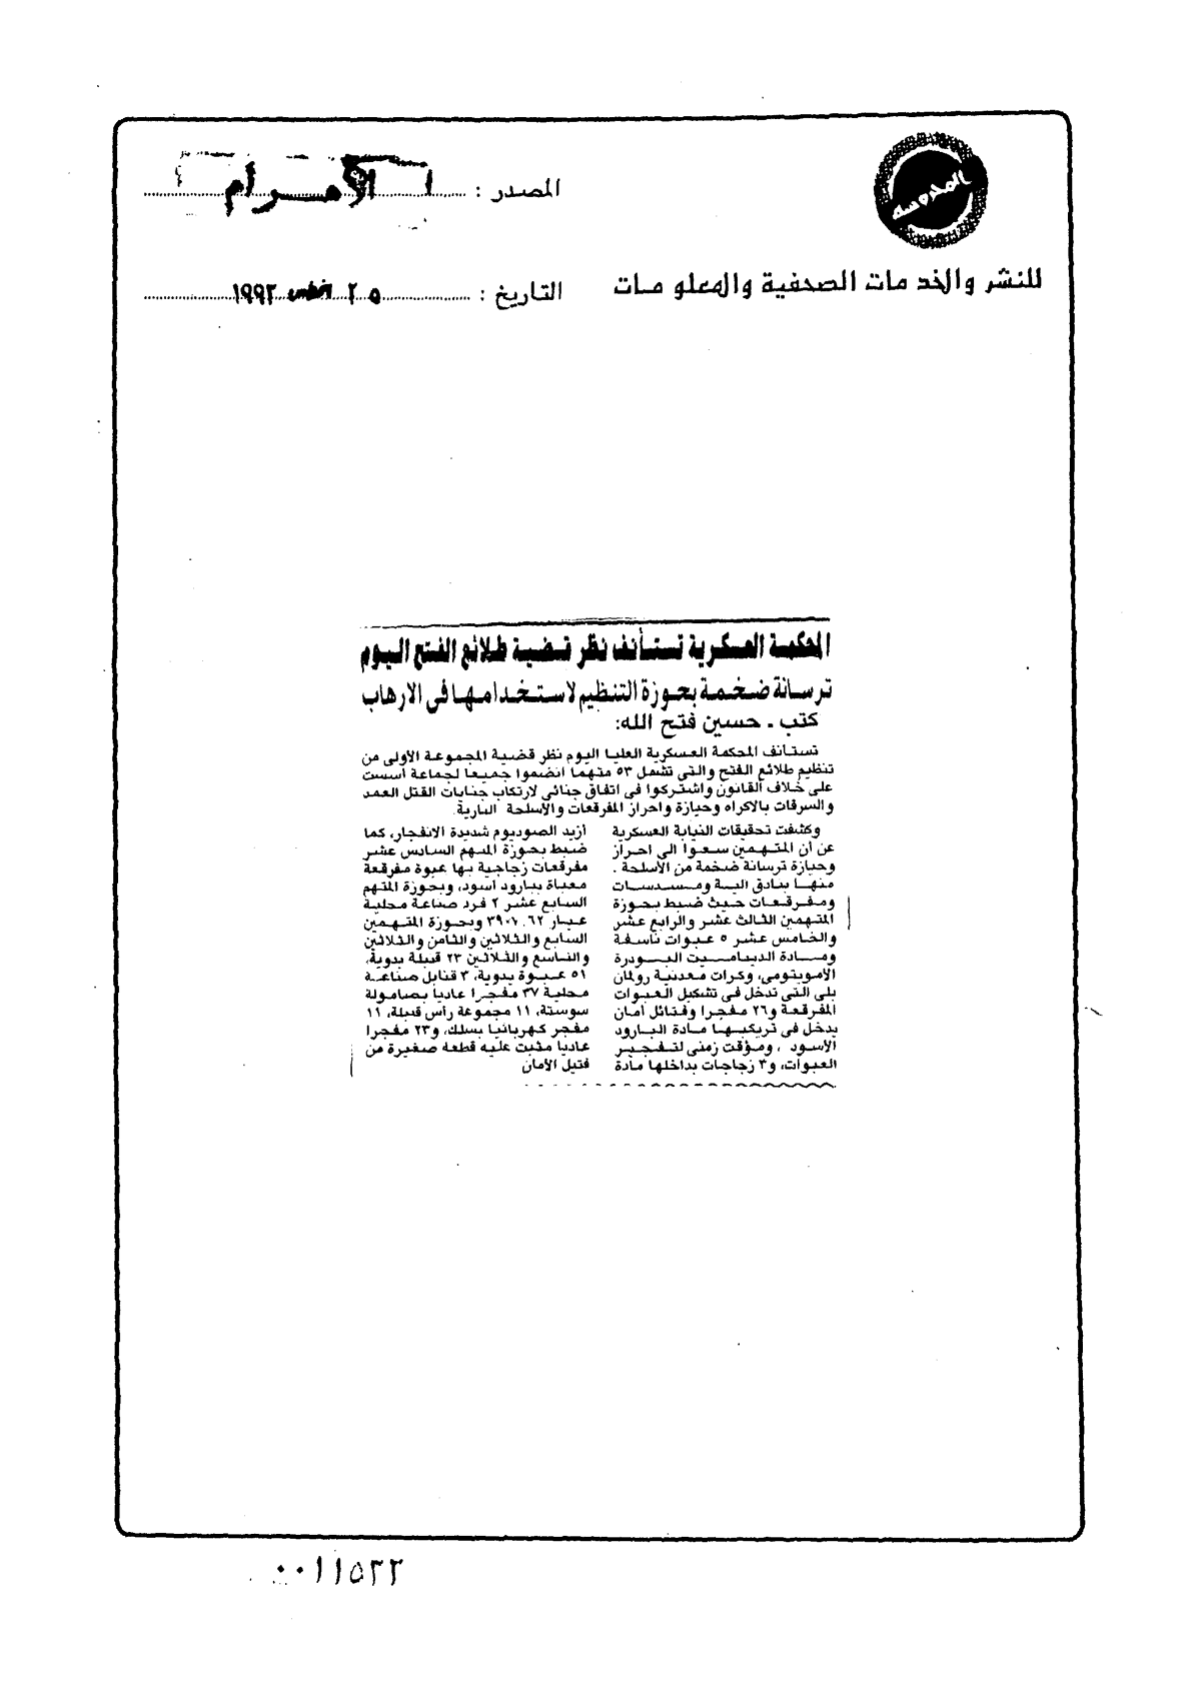 المحروسة
للنشر والخدمات الصحفية والمعلومات
المصدر : الأهرام
التاريخ : ٢٥ أغسطس ١٩٩٣
المحكمة العسكرية تستأنف نظر قضية طلائع الفتح اليوم
ترسانة ضخمة بحوزة التنظيم لاستخدامها فى الارهاب
كتب ـ حسين فتح الله:
تستانف المحكمة العسكرية العليا اليوم نظر قضية المجموعة الأولى من
تنظيم طلائع الفتح والتى تشمل ٥٣ متهما انضموا جميعا لجماعة أسست
على خلاف القانون واشتركوا فى اتفاق جنائى لارتكاب جنايات القتل العمد
والسرقات بالاكراه وحيازة واحراز المفرقعات والأسلحة النارية.
وكشفت تحقيقات النيابة العسكرية
عن أن المتهمين سعوا الى احراز
وحيازة ترسانة ضخمة من الأسلحة .
منها بنادق الية ومسدسات
ومفرقعات حيث ضبط بحوزة
المتهمين الثالث عشر والرابع عشر
والخامس عشر ٥ عبوات ناسفة
ومادة الديناميت البودرة
الامويتومى، وكرات معدنية رولمان
بلى التى تدخل فى تشكيل العبوات
المفرقعة و٢٦ مفجرا وفتائل أمان
يدخل فى تركيبها مادة البارود
الأسود ، ومؤقت زمنى لتفجير
العبوات، و٣ زجاجات بداخلها مادة
أزيد الصوديوم شديدة الانفجار، كما
ضبط بحوزة المتهم السادس عشر
مفرقعات زجاجية بها عبوة مفرقعة
معباة ببارود أسود، وبحوزة المتهم
السابع عشر ٢ فرد صناعة محلية
عيار ٦٢, وبحوزة المتهمين
السابع والثلاثين والثامن والثلاثين
والتاسع والثلاثين ٢٣ قنبلة يدوية،
٥١ عبوة يدوية، ٣ قنابل صناعة
محلية ٣٧ مفجرا عاديا بصامولة
سوستة، ١١ مجموعة رأس قنبلة، ١١
مفجر كهربائيا بسلك، و٢٣ مفجرا
عاديا مثبت عليه قطعة صغيرة من
فتيل الأمان
٠٠١١٥٣٣